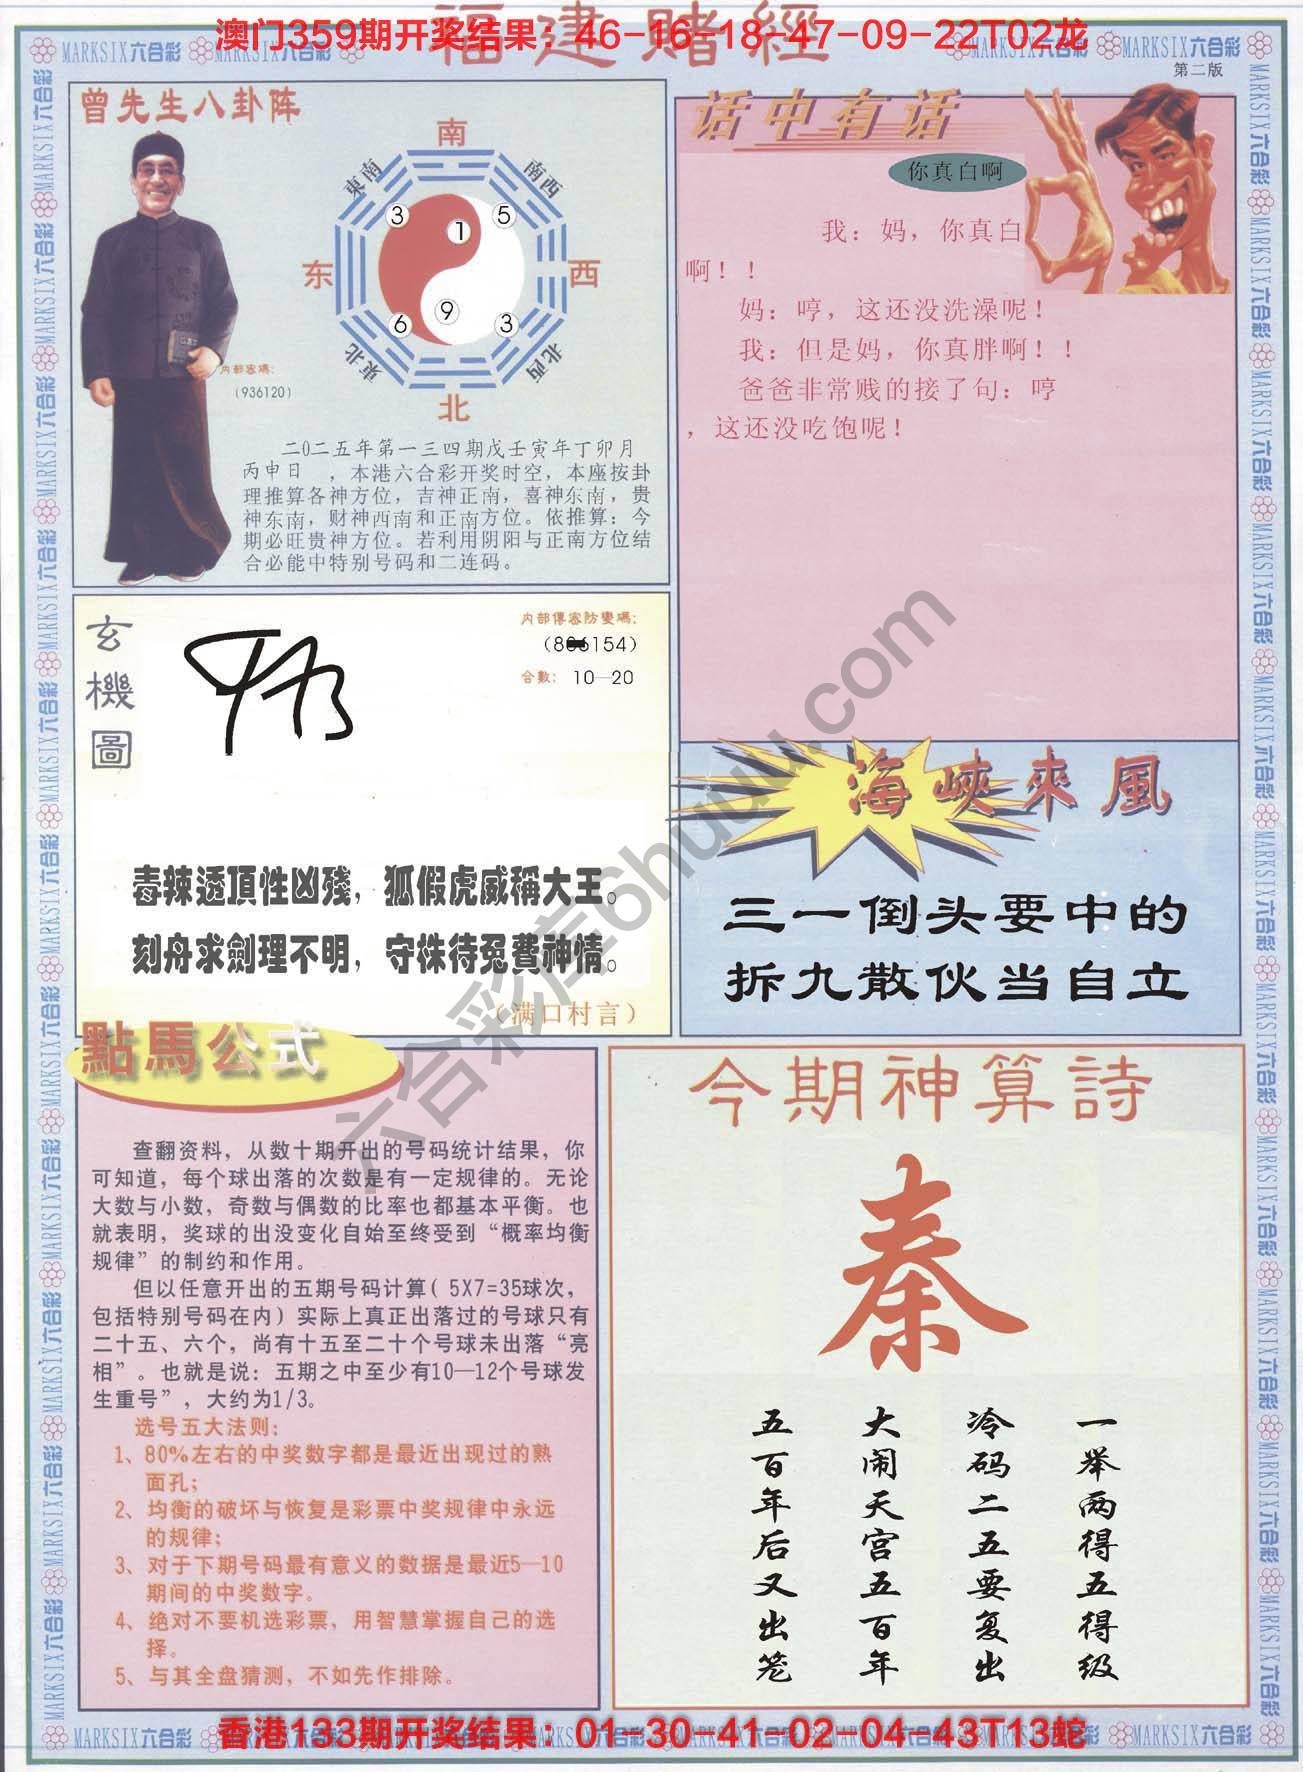 福建赌經
澳门359期开奖结果：46-16-18-47-09-22T02龙
MARKSIX六合彩 MARKSIX六合彩 MARKSIX六合彩 MARKSIX六合彩
第二版
曾先生八卦阵
南
東南
南西
3
5
1
东
西
9
6
3
東北
北西
北
内部密碼：
（936120）
二0二五年第一三四期戊壬寅年丁卯月
丙申日　，本港六合彩开奖时空，本座按卦
理推算各神方位，吉神正南，喜神东南，贵
神东南，财神西南和正南方位。依推算：今
期必旺贵神方位。若利用阴阳与正南方位结
合必能中特别号码和二连码。
话中有话
你真白啊
我：妈，你真白
啊！！
妈：哼，这还没洗澡呢！
我：但是妈，你真胖啊！！
爸爸非常贱的接了句：哼
，这还没吃饱呢！
玄機圖
内部傳密防變碼：
（806154）
合數：10—20
毒辣透頂性凶殘，狐假虎威稱大王。
刻舟求劍理不明，守株待兔費神情。
（满口村言）
海峽來風
三一倒头要中的
拆九散伙当自立
點馬公式
查翻资料，从数十期开出的号码统计结果，你
可知道，每个球出落的次数是有一定规律的。无论
大数与小数，奇数与偶数的比率也都基本平衡。也
就表明，奖球的出没变化自始至终受到“概率均衡
规律”的制约和作用。
但以任意开出的五期号码计算（5X7=35球次，
包括特别号码在内）实际上真正出落过的号球只有
二十五、六个，尚有十五至二十个号球未出落“亮
相”。也就是说：五期之中至少有10—12个号球发
生重号”，大约为1/3。
选号五大法则：
1、80%左右的中奖数字都是最近出现过的熟
面孔；
2、均衡的破坏与恢复是彩票中奖规律中永远
的规律；
3、对于下期号码最有意义的数据是最近5—10
期间的中奖数字。
4、绝对不要机选彩票，用智慧掌握自己的选
择。
5、与其全盘猜测，不如先作排除。
今期神算詩
秦
一举两得五得级
冷码二五要复出
大闹天宫五百年
五百年后又出笼
六合彩库6huuu.com
MARKSIX六合彩 MARKSIX六合彩
香港133期开奖结果：01-30-41-02-04-43T13蛇